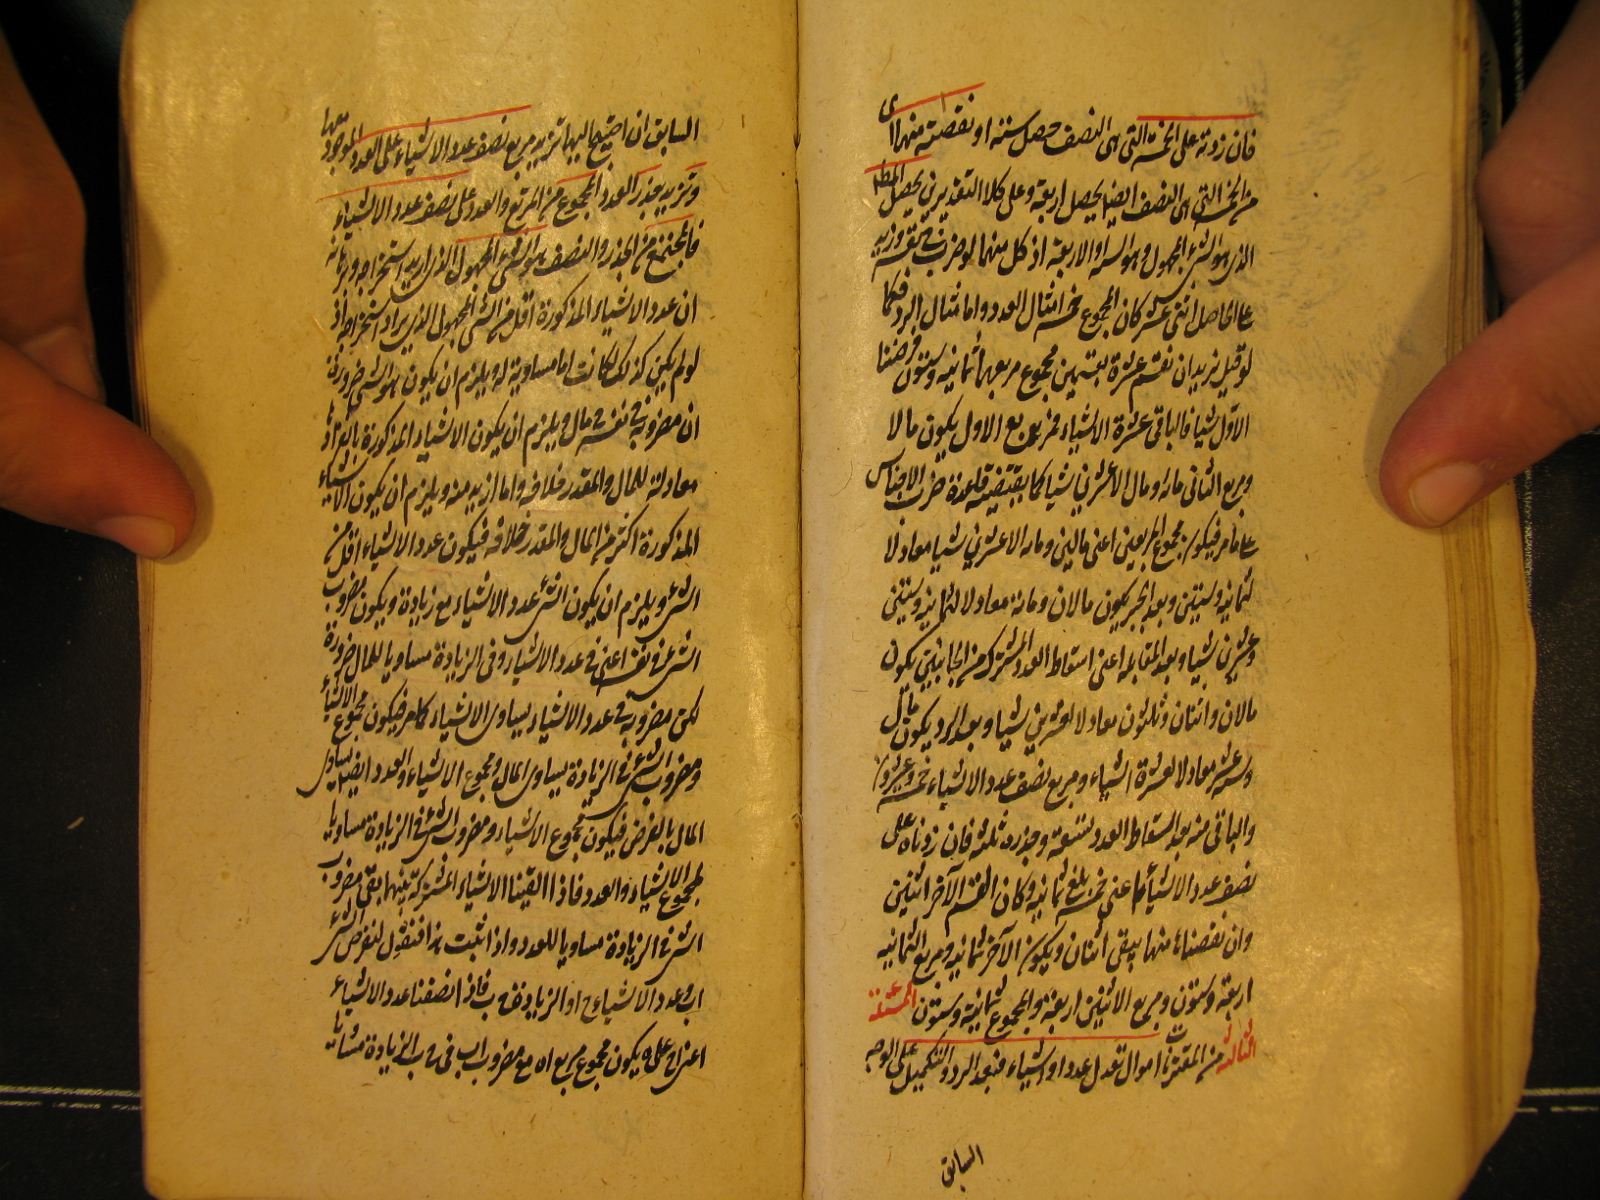 فان زدته على الخمسة التى هى النصف حصل ستة او نقصته منها اى
من الخمسة التى هى النصف ايضا يحصل اربعة وعلى كلا التقديرين يحصل المط
الذى هو الشئ المجهول وهو الستة او الاربعة اذ كل منهما لو ضرب فى نفسه وزيد
على الحاصل اثنى عشر كان المجموع خمسة امثال العدد واما مثال الرد فكما
لو قيل نريد ان نقسم عشرة بقسمين مجموع مربعيهما ثمانية وستون فرضنا
الاول شيئا فالباقى عشرة الا شيئا فمربع الاول يكون مالا
ومربع الثانى مائة ومال الا عشرين شيئا كما يقتضيه قاعدة ضرب الاجناس
على ما مر فيكون مجموع المربعين اعنى مالين ومائة الا عشرين شيئا معادلا
لثمانية وستين وبعد الجبر يكون مالان ومائة معادلا لثمانية وستين
وعشرين شيئا وبعد المقابلة اعنى اسقاط العدد المشترك من الجانبين يكون
مالان واثنان وثلثون معادلا لعشرين شيئا وبعد الرد يكون مال
وستة عشر معادلا لعشرة اشياء ومربع نصف عدد الاشياء خمسة وعشرون
والباقى منه بعد اسقاط العدد تسعة وجذره ثلثة فان زدناه على
نصف عدد الاشياء اعنى خمسة بلغ ثمانية وكان القسم الآخر اثنين
وان نقصناها منها يبقى اثنان ويكون الآخر ثمانية ومربع الثمانية
اربعة وستون ومربع الاثنين اربعة والمجموع ثمانية وستون المسئلة
الثالثة من المقترنات اموال تعدل عددا واشياء فبعد الرد والتكميل على الوجه
السابق
السابق ان احتيج اليهما تزيد مربع نصف عدد الاشياء على العدد الموجود معها
وتزيد جذر العدد المجموع من المربع والعدد على نصف عدد الاشياء
فالمجتمع من الجذر والنصف هو الشئ المجهول الذى اريد استخراجه
ان عدد الاشياء المذكورة اقل من الشئ المجهول الذى يراد استخراجه اذ
لو لم يكن كذلك لكانت اما مساوية له ويلزم ان يكون هو الشئ ضرورة
ان مضروبه فى نفسه مال ويلزم ان يكون الاشياء المذكورة بانفرادها
معادلة للمال والمقدر خلافه واما ازيد منه ويلزم ان يكون الاشياء
المذكورة اكثر من المال والمقدر خلافه فيكون عدد الاشياء اقل من
الشئ ويلزم ان يكون الشئ عدد الاشياء مع زيادة ويكون مضروب
الشئ فى نفسه اعنى فى عدد الاشياء وفى الزيادة مساويا للمال ضرورة
لكن مضروبه فى عدد الاشياء يساوى الاشياء كما مر فيكون مجموع الاشياء
ومضروب الشئ فى الزيادة يساوى المال ومجموع الاشياء والعدد ايضا يساوى
المال بالفرض فيكون مجموع الاشياء ومضروب الشئ فى الزيادة مساويا
لمجموع الاشياء والعدد فاذا القينا الاشياء المشتركة بينهما بقى مضروب
الشئ فى الزيادة مساويا للعدد واذا ثبت هذا فنقول لنفرض الشئ
اب وعدد الاشياء اح او الزيادة ح ب فاذا انصفنا عدد الاشياء
اعنى اح على ه يكون مجموع مربع اه مع مضروب اب فى ح ب الزيادة مساويا